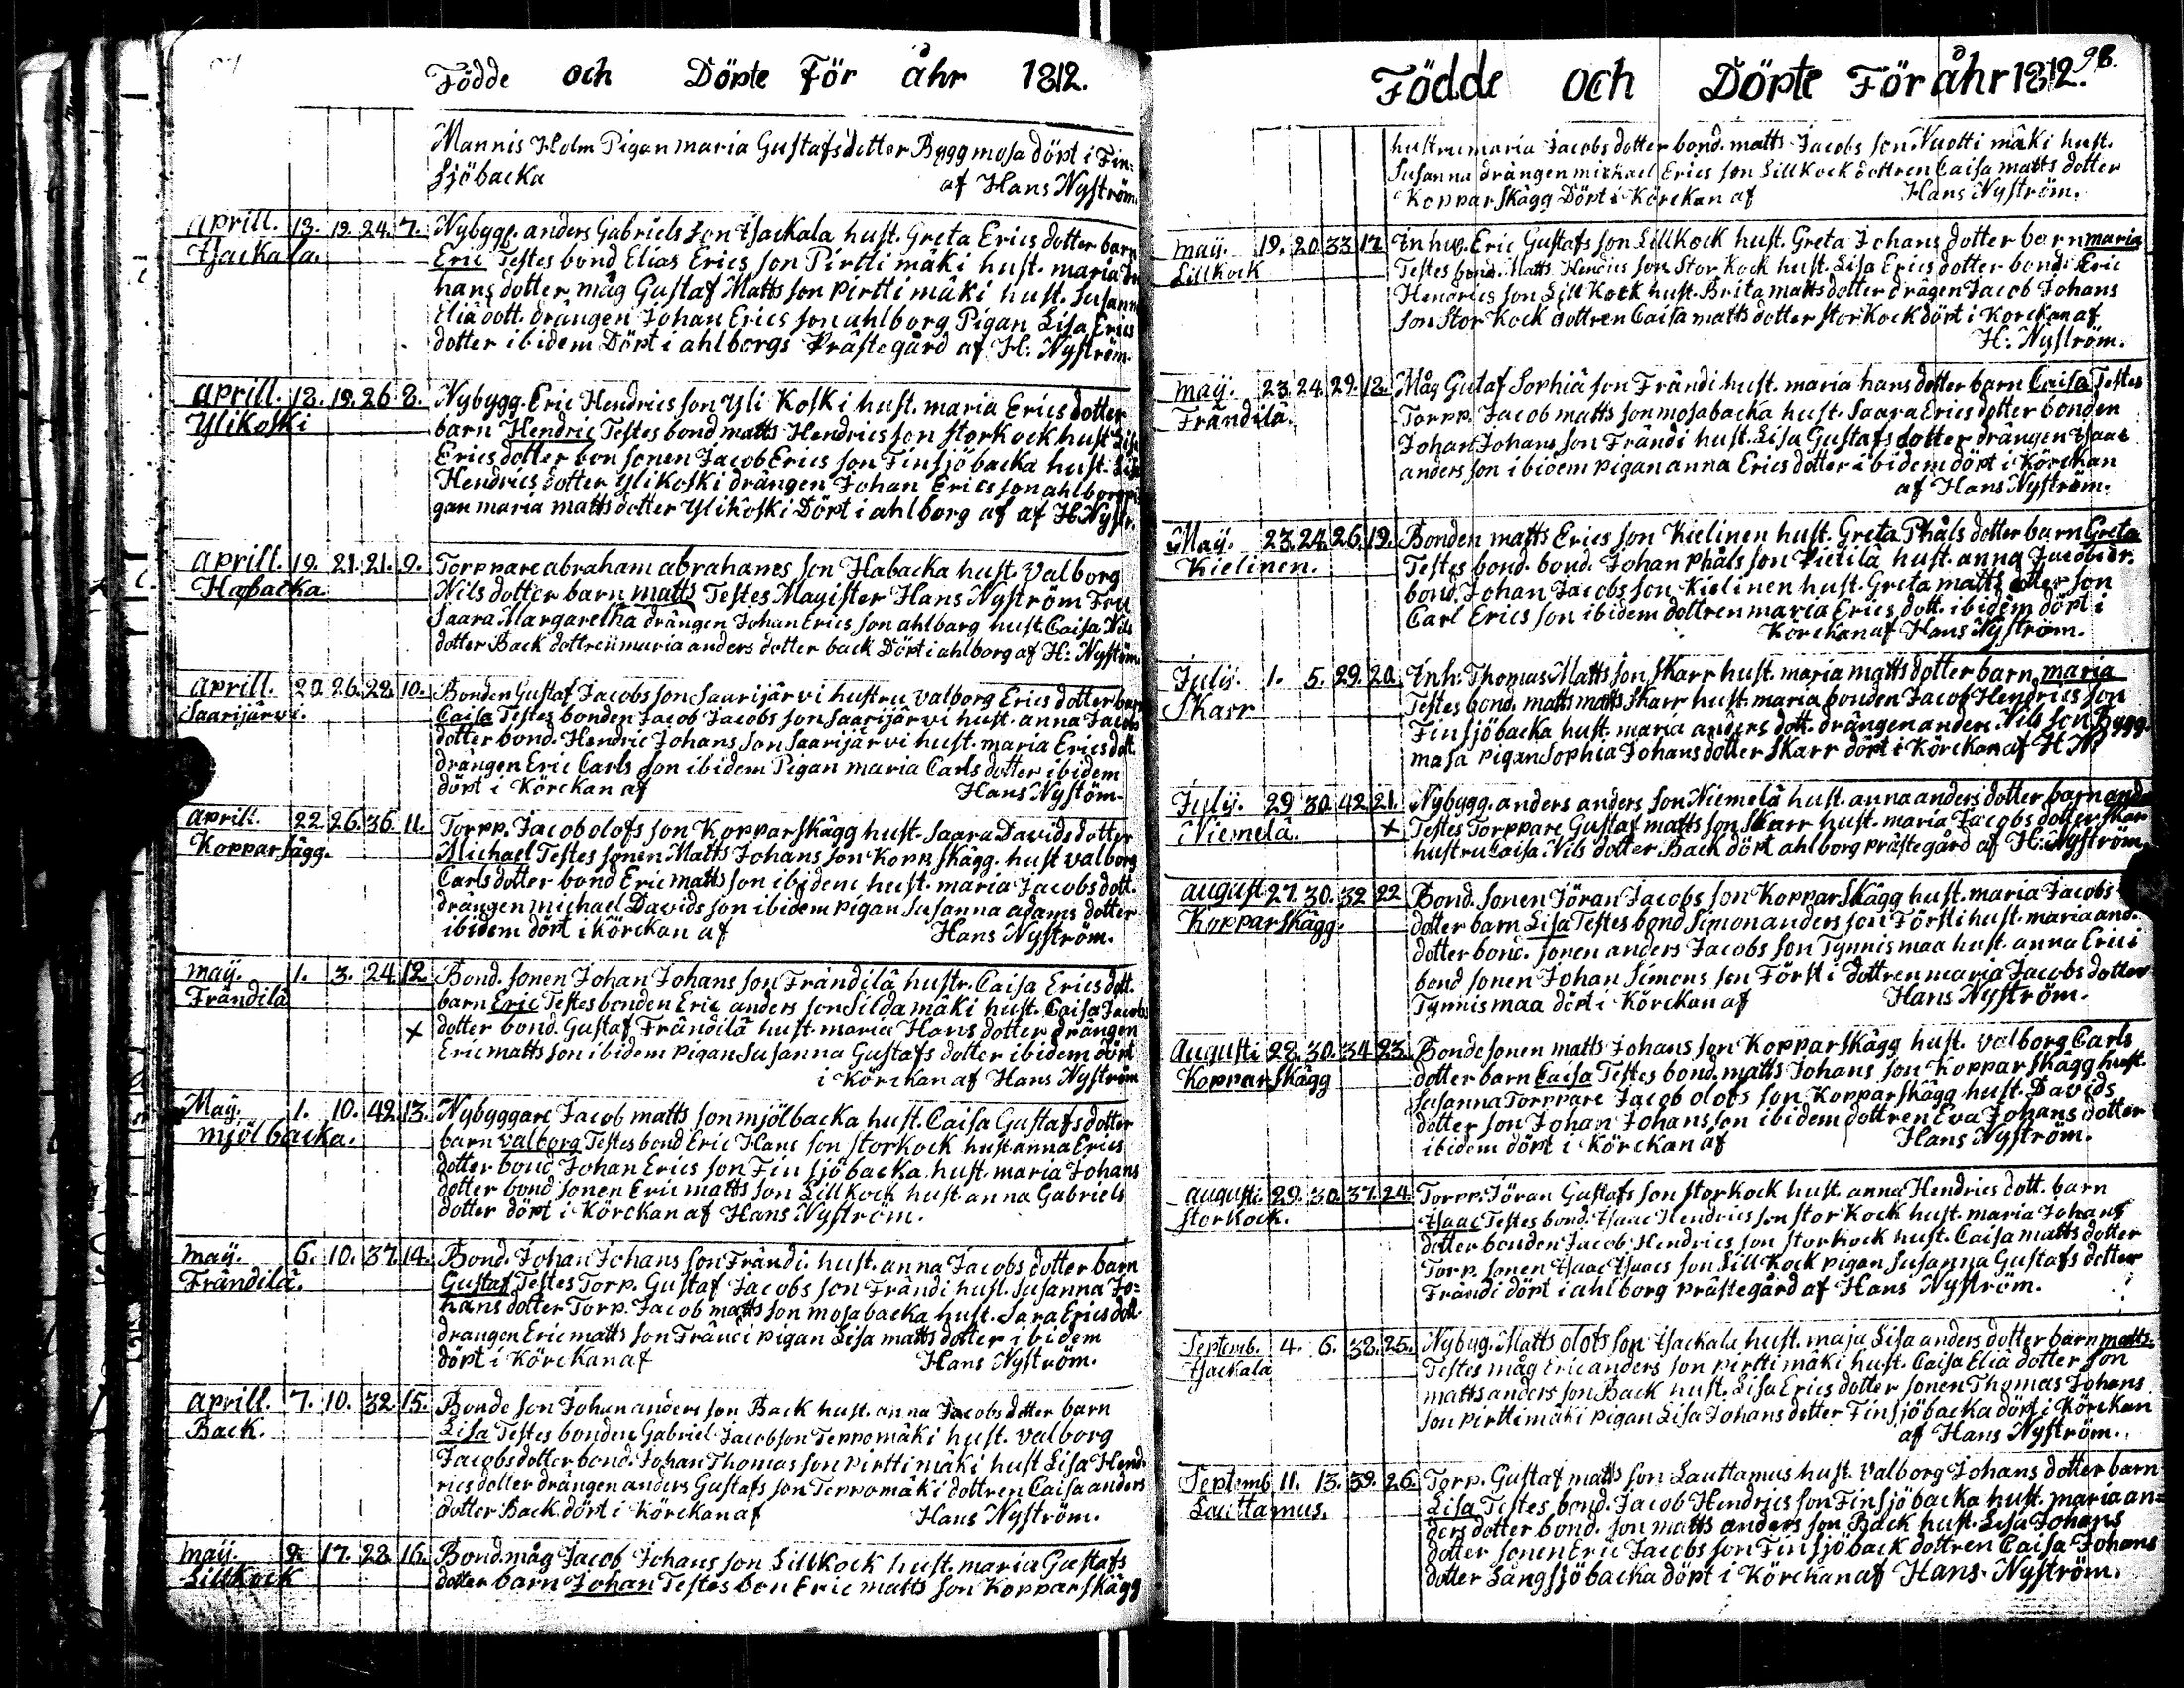 Födde och Döpte För åhr 1812.
Mannis Holm Pigan maria Gustafsdotter Byggmosa döpt i Fin:
sjöbacka af Hans Nyström
aprill. 13. 19. 24. 7. Nybygg. anders Gabriels son Isackala hust. Greta Erics dotter barn
Isackala. Eric Testes bond Elias Erics son Pirtti mäki hust. maria Jo
hans dotter måg Gustaf Matts son pirtti mäki hust. Susanna
Eliä dott. drängen Johan Erics son ahlborg Pigan Lisa Erics
dotter ibidem Döpt i ahlborgs Prästegård af H: Nyström.
aprill. 18. 19. 26 8. Nybygg. Eric Hendrics son Yli Koski hust. maria Erics dotter
Ylikoski barn Hendric Testes bond matts Hendrics son storkock hust Lisa
Erics dotter bon sonen Jacob Erics son Finsjöbacka hust.
Hendrics dotter Ylikoski drängen Johan Erics son ahlborg pi
gan maria matts dotter Ylikoski Döpt i ahlborg af af H Nyst.
aprill. 19. 21. 21. 9. Torppare abraham abrahames son Habacka hust. Valborg
Habacka Nils dotter barn matts Testes Magister Hans Nyström Fru
Saara Margaretha drängen Johan Erics son ahlbarg hust. Caisa Nils
dotter Back dottren maria anders dotter back Döpt i ahlborg af H: Nyström
aprill. 20. 26. 28. 10. Bonden Gustaf Jacobs son Saarijärvi hustru Valborg Erics dotter barn
Saarijärvi. Caisa Testes bonden Jacob Jacobs son Saarijärvi hust. anna Jacobs
dotter bond. Hendric Johans son Saarijärvi hust. maria Erics dott.
drängen Eric Carls son ibidem Pigan maria Carls dotter ibidem
döpt i Körckan af Hans Nyström.
aprill. 22 26. 36 11. Torpp. Jacob olofs son Kopparskägg hust. Saara Davids dotter
Kopparsägg. Michael Testes sonen Matts Johans son Kopp skägg. hust valborg
Carls dotter bond Eric matts son ibidem hust. maria Jacobs dott.
drängen michael Davids son ibidem pigan Susanna adams dotter
ibidem döpt i körckan af Hans Nyström.
may. 1. 3. 24. 12. Bond. sonen Johan Johans son Frändilä hustr. Caisa Erics dott.
Frändilä barn Eric Testes bonden Eric anders son Silda mäki hust. Caisa Jacobs
x dotter bond. Gustaf Frändilä hust. maria Hans dotter drängen
Eric matts son ibidem pigan Susanna Gustafs dotter ibidem döpt
i Körckan af Hans Nyström
May. 1. 10. 42. 13. Nybyggare Jacob matts son mjölbacka hust. Caisa Gustafs dotter
mjölbacka. barn valborg Testes bond Eric Hans son storkock hust anna Erics
dotter bond Johan Erics son Fin sjöbacka hust. maria Johans
dotter bond sonen Eric matts son Lillkock hust. anna Gabriels
dotter döpt i Körckan af Hans Nyström.
may. 6. 10. 37. 14. Bond. Johan Johans son Frändi. hust. anna Jacobs dotter barn
Frändilä. Gustaf Testes Torp. Gustaf Jacobs son Frändi hust. Susanna Jo=
hans dotter Torp. Jacob matts son mosabacka hust. Sara Erics dott.
drangen Eric matts son Frändi pigan Lisa matts dotter ibidem
döpt i Körckan af Hans Nyström.
aprill. 7. 10. 32. 15. Bonde son Johan anders son Back hust. anna Jacobs dotter barn
Back. Lisa Testes bonden Gabriel Jacobson Teppomäki hust. valborg
Jacobsdotter bond. Johan Thomas son pirttimäki hust Lisa Hend
rics dotter drängen anders Gustafs son Teppomäki dottren Caisa anders
dotter Back. döpt i Körckan af Hans Nyström.
may. 9. 17. 28. 16. Bond. måg Jacob Johans son Lillkock hust. maria Gustafs
Lillkock dotter barn Johan Testes bon Eric matts son Kopparskägg
Födde och Döpte För åhr 1812. 98.
hustru maria Jacobs dotter bond. matts Jacobs son Nuotti mäki hust.
Susanna drängen michael Erics son Lillkock dottren Caisa matts dotter
Kopparskägg Döpt i Körckan af Hans Nyström.
may. 19. 20. 33 17. Inhys. Eric Gustafs son Lillkock hust. Greta Johans dotter barn maria
Lillkock Testes bond. Matts Hendrics son Stor Kock hust. Lisa Erics dotter bond. Eric
Hendrics son Lill Kock hust. Brita matts dotter drägen Jacob Johans
son Stor Kock dottren Caisa matts dotter storkock döpt i Korckan af
H: Nyström.
may. 23. 24. 29. 18. Måg Gustaf Sophiä son Frändi hust. maria hans dotter barn Caisa Testes
Frändilä. Torpp. Jacob matts son mosabacka hust. Saara Erics dotter bonden
Johan Johans son Frändi hust. Lisa Gustafs dotter drängen Isaac
anders son ibidem pigan anna Erics dotter ibidem döpt i Körckan
af Hans Nyström.
May. 23. 24. 26. 19. Bonden matts Erics son Kielinen hust. Greta Phåls dotter barn Greta
Kielinen. Testes bond. bond. Johan phåls son Pietilä hust. anna Jacobs dr.
bond. Johan Jacobs son Kielinen hust. Greta matts dotter son
Carl Erics son ibidem dottren maria Erics dott. ibidem döpt i
Körckan af Hans Nyström.
Julij. 1. 5. 29. 20. Inh: Thomas Matts son Skarr hust. maria matts dotter barn maria
Skarr Testes bond. matts matts Skarr hust. maria bonden Jacob Hendrics son
Finsjöbacka hust. maria anders dott. drängen anders Nils son Bygg
masa pigan Sophia Johans dotter Skarr döpt i Körckan af H N
Julij. 29 30. 42. 21. Nybygg. anders anders son Niemelä hust. anna anders dotter barn
Niemelä. x Testes Torppare Gustaf matts son Skarr hust. maria Jacobs dotter Skar
hustru Caisa Nils dotter Back döpt ahlborg prästegård af H: Nyström
august 27. 30. 32 22 Bond. sonen Jöran Jacobs son Kopparskägg hust. maria Jacobs
Kopparskägg. dotter barn Lisa Testes bond Simon anders son Försti hust. maria and.
dotter bond. sonen anders Jacobs son Tynnismaa hust. anna Erici
bond sonen Johan Simons son Försti dottren maria Jacobs dotter
Tynnismaa döpt i Körckan af Hans Nyström.
Augusti 28. 30. 34 23. Bonde sonen matts Johans son Kopparskägg hust. valborg Carls
Kopparskägg dotter barn Caisa Testes bond. matts Johans son Kopparskägg hust.
Susanna Torppare Jacob olofs son Kopparskägg hust. Davids
dotter son Johan Johans son ibidem dottren Eva Johans dotter
ibidem döpt i Körckan af Hans Nyström.
augusti. 29. 30. 37. 24. Torpp. Jöran Gustafs son storkock hust. anna Hendrics dott. barn
storkock. Isaac Testes bond. Isaac Hendrics son stor Kock hust. maria Johans
dotter bonden Jacob Hendrics son storkock hust. Caisa matts dotter
Torp. sonen Isaac Isaacs son Lill Kock pigan Susanna Gustafs dotter
Frändi döpt i ahlborg prästegård af Hans Nyström.
Septemb. 4. 6. 38. 25. Nybyg. Matts olofs son Isackala hust. maja Lisa anders dotter barn matts.
Isackala Testes måg Eric anders son pirttimäki hust. Caisa Elia dotter son
matts anders son Back hust. Lisa Erics dotter sonen Thomas Johans
son pirttimäki pigan Lisa Johans dotter Finsjöbacka döpt i Körckan
af Hans Nyström.
Septemb 11. 13. 39. 26. Torp. Gustaf matts son Lauttamus hust. Valborg Johans dotter barn
Lauttamus. Lisa Testes bond. Jacob Hendrics son Finsjöbacka hust. maria an=
ders dotter bond. son matts anders son Back hust. Lisa Johans
dotter sonen Eric Jacobs son Finsjöback dottren Caisa Johans
dotter Långsjöbacka döpt i Körckan af Hans Nyström.